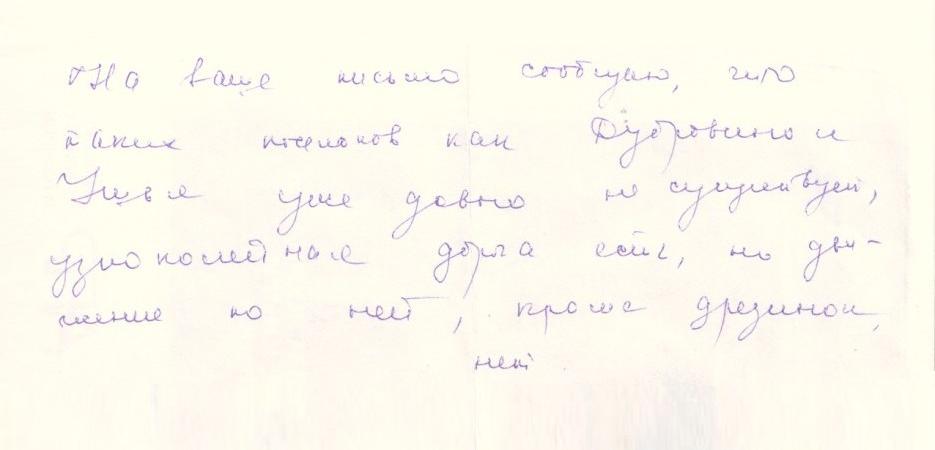 На ваше письмо сообщаю, что
таких поселков как Дубровино и
уже давно не существует,
узкоколейная дорога есть, но дви-
жение по ней, кроме дрезинои,
нет